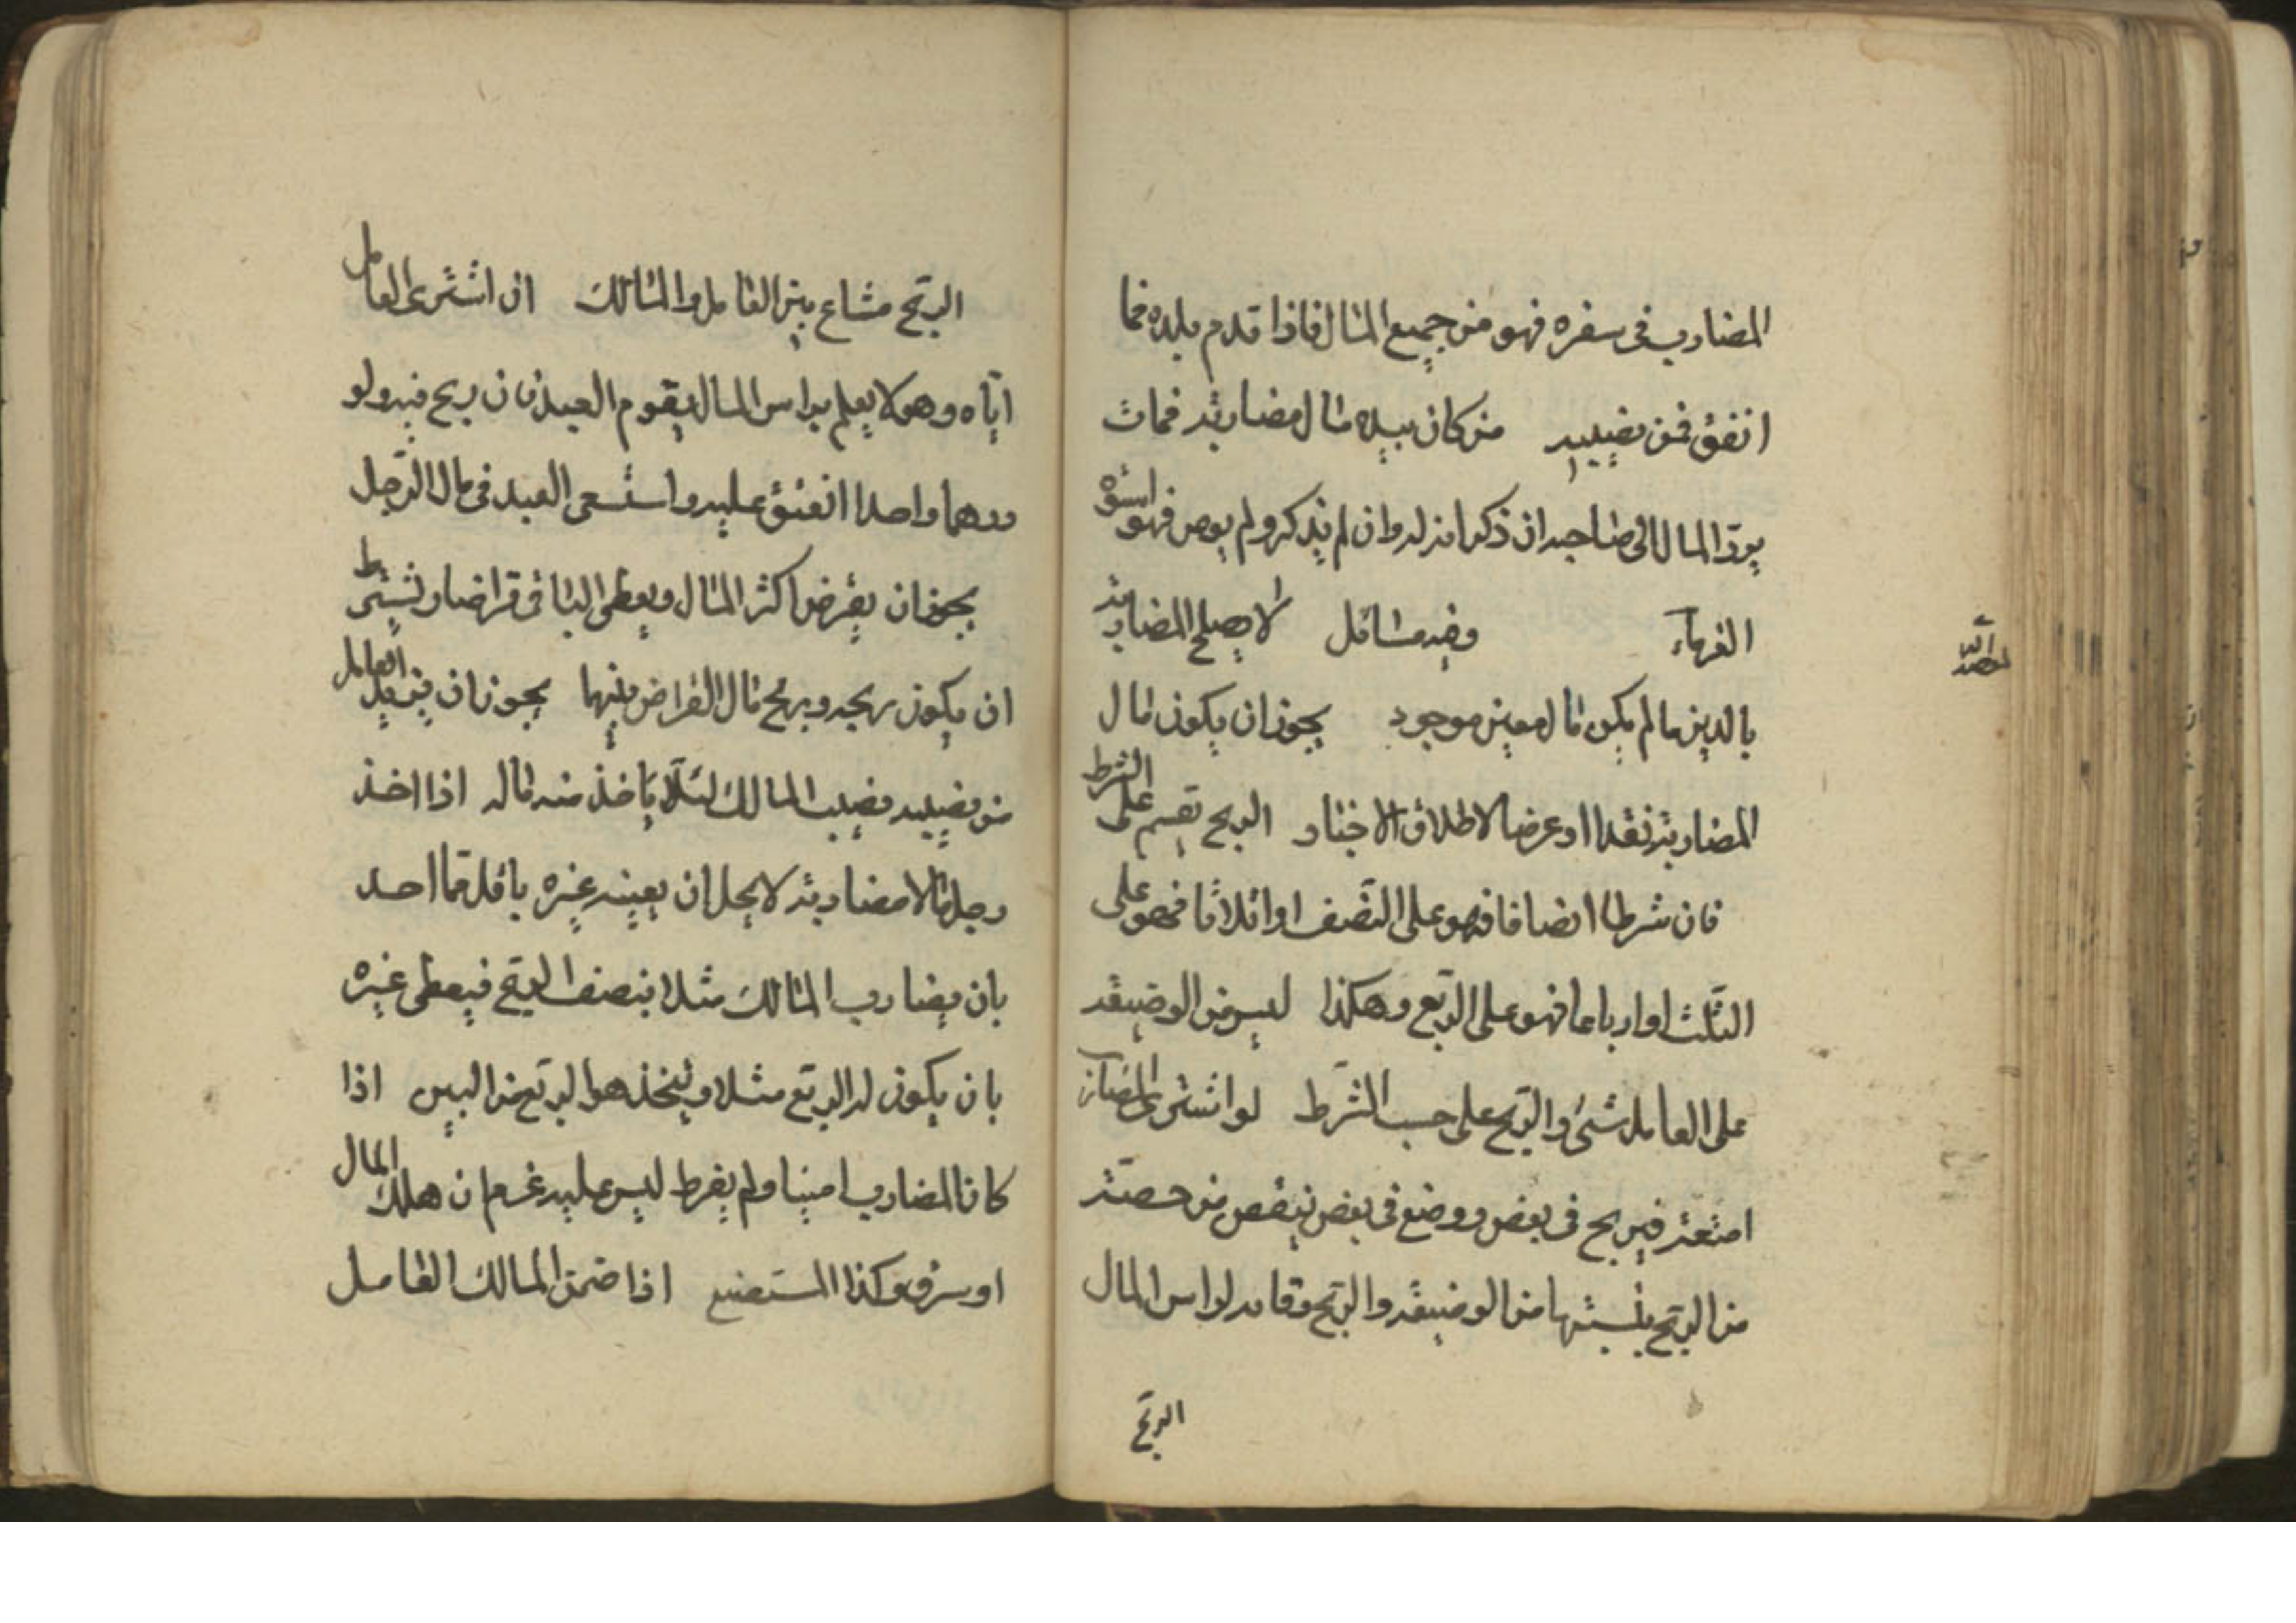 المضارب في سفره فهو من جميع المال فاذا قدم بلده فما
انفق فمن نصيبه من كان بيده مال مضاربة فمات
يردّ المال الى صاحبه ان ذكر انه له وان لم يذكر ولم يوص فهو اسوة
الغرماء وفيه مسائل لا يصلح المضاربة
بالدين ما لم يكن مال معين موجود يجوز ان يكون مال
المضاربة نقدا او عرضا لاطلاق الاخبار الربح تقسم على الشرط
فان شرطا انصافا فهو على النّصف او اثلاثا فهو على
الثّلث او ارباعا فهو على الرّبع وهكذا ليس من الوضيعة
على العامل شئ والرّبح على حسب الشّرط لو اشترى المضارب
امتعة فيربح في بعض ووضع في بعض ينقص من حصّة
من الرّبح بنسبتها من الوضيعة والرّبح وقاية لراس المال
الرّبح
الرّبح مشاع بين العامل والمالك ان اشترى العامل
ايّاه وهو لا يعلم براس المال يقوم العبد فان ربح فيه ولو
درهما واحدا انعتق عليه واستسعى العبد في مال الرّجل
يجوز ان يقرض اكثر المال ويعطى الباقي قراضا ويشترط
ان يكون ربحه وربح مال القراض بينهما يجوز ان يزيد العامل
من نصيبه نصيب المالك لئلّا ياخذ منه ماله اذا اخذ
رجل مالا مضاربة لا يحل ان يعينه غيره باقل ممّا اخذ
بان يضارب المالك مثلا بنصف الرّبح فيعطى غيره
بان يكون له الرّبع مثلا ويتخذ هو الرّبع من البين اذا
كان المضارب امينا ولم يفرط ليس عليه غرم ان هلك المال
او سرق وكذا المستبضع اذا ضمن المالك العامل